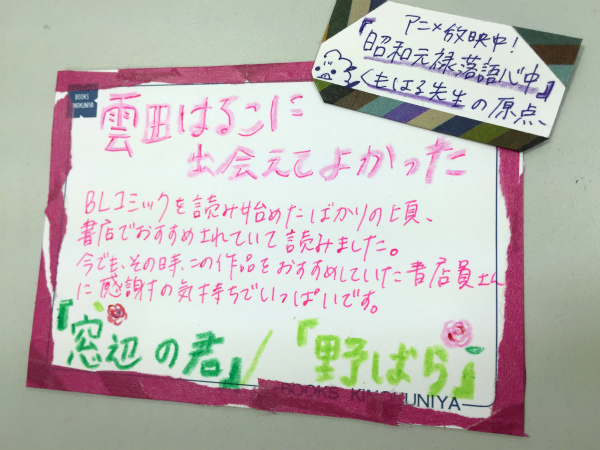 アニメ放映中!
『昭和元禄落語心中』
くもはる先生の原点、
BOOKS
KINOKUNIYA
雲田はるこに
出会えてよかった
BLコミックを読み始めたばかりの頃、
書店でおすすめされていて読みました。
今でも、その時、この作品をおすすめしていた書店員さん
に感謝の気持ちでいっぱいです。
『窓辺の君』/『野ばら』
BOOKS KINOKUNIYA